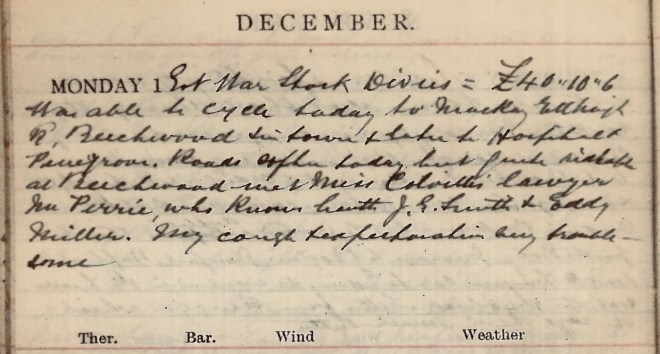 DECEMBER.
MONDAY 1 Got War Stock Divies = £40"10"6
Was able to cycle today to Mackay
R, Beechwood in town & later to Hospital &
Pinegrove. Roads softer today but quite ridable
at Beechwood met Miss Colvill's lawyer
Mr Perrie, who knows both J. E. Smith & Eddy
Miller. My cough & expectoration very trouble-
some
Ther. Bar. Wind Weather